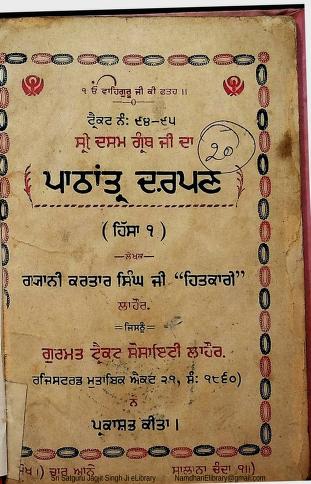 ੧ ਓ ਵਾਹਿਗੁਰੂ ਜੀ ਕੀ ਫਤਹ ॥
ਟ੍ਰੈਕਟ ਨੰ: ੯੪-੯੫
ਸ੍ਰੀ ਦਸਮ ਗ੍ਰੰਥ ਜੀ ਦਾ
20
ਪਾਠਾਂਤ੍ਰ ਦਰਪਣ
( ਹਿੱਸਾ ੧ )
—ਲੇਖਕ—
ਗਯਾਨੀ ਕਰਤਾਰ ਸਿੰਘ ਜੀ “ਹਿਤਕਾਰੀ”
ਲਾਹੌਰ.
=ਜਿਸਨੂੰ=
ਗੁਰਮਤ ਟ੍ਰੈਕਟ ਸੋਸਾਇਟੀ ਲਾਹੌਰ.
ਰਜਿਸਟਰਡ ਮੁਤਾਬਿਕ ਐਕਟ ੨੧, ਸੰ: ੧੮੬੦)
ਨੇ
ਪ੍ਰਕਾਸ਼ਤ ਕੀਤਾ ।
ਚਾਰ ਆਨੇ ਸਾਲਾਨਾ ਚੰਦਾ ੧॥)
Sri Satguru Jagjit Singh Ji eLibrary NamdhariElibrary@gmail.com